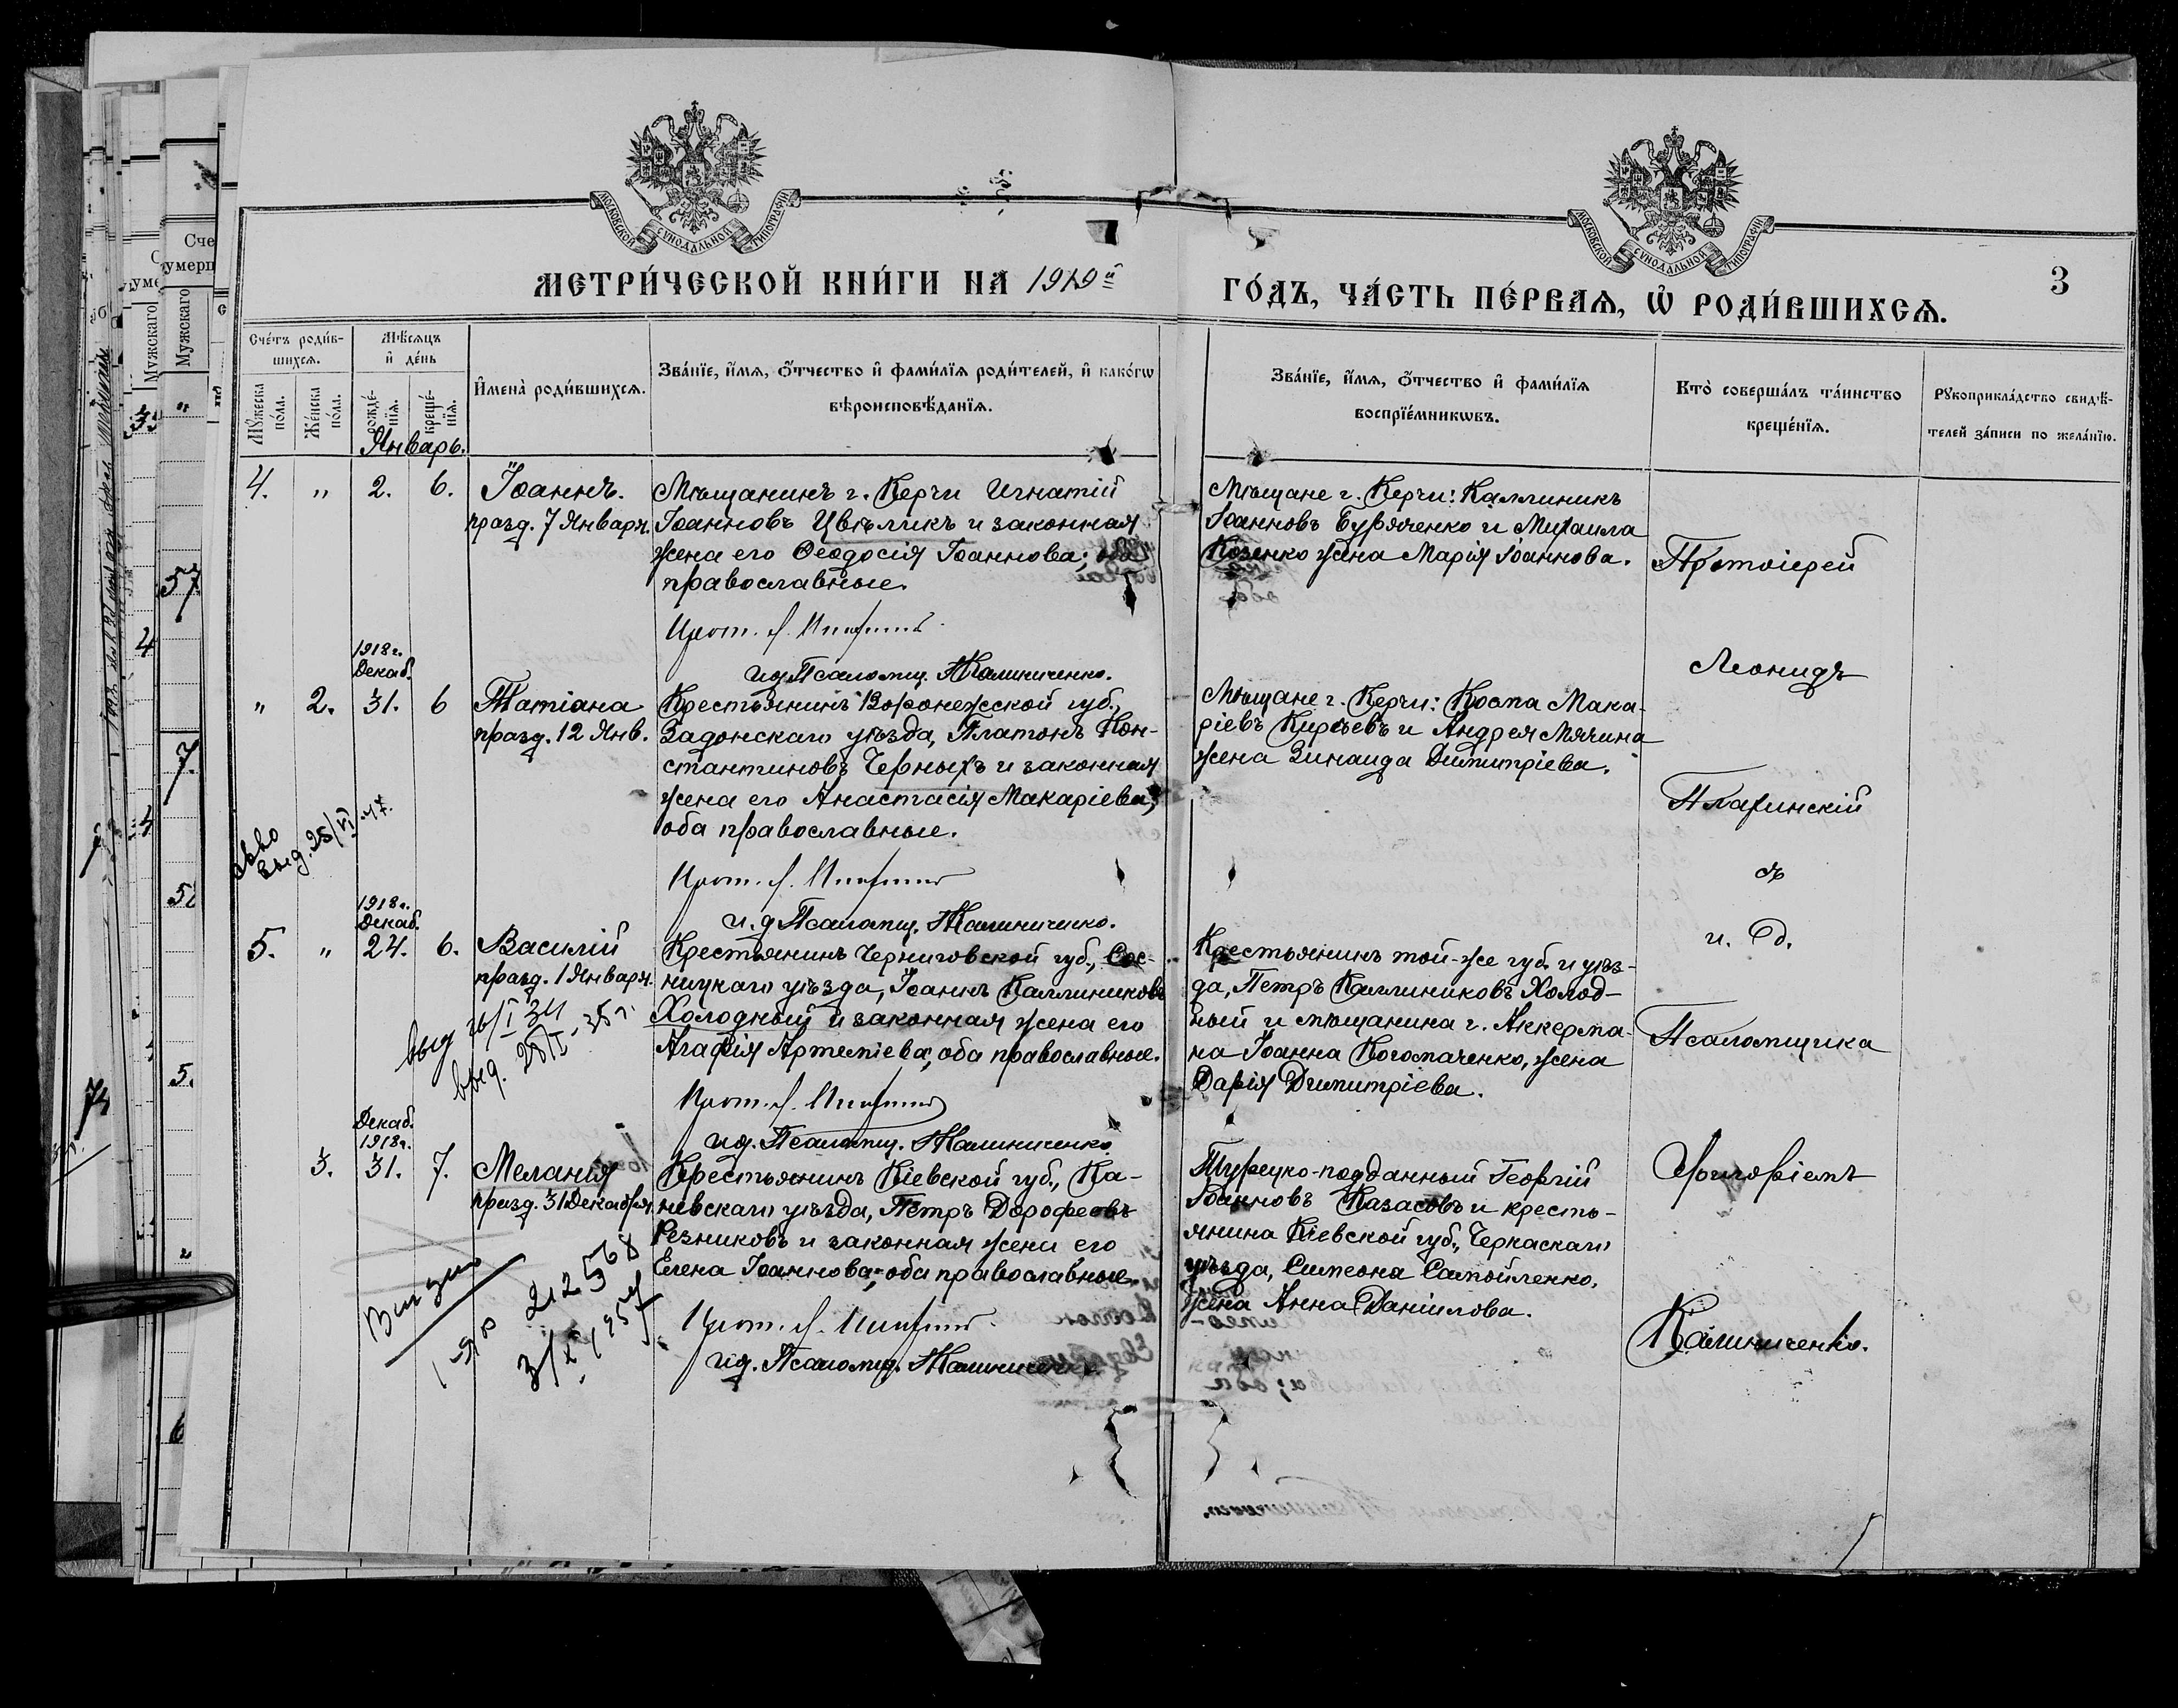 МОСКОВСКОЙ СѴНОДАЛЬНОЙ ТИПОГРАФІИ
МОСКОВСКОЙ СѴНОДАЛЬНОЙ ТИПОГРАФІИ
МЕТРИ́ЧЕСКОЙ КНИ́ГИ НА 1919й
ГО́ДЪ, ЧА́СТЬ ПЕ́РВАѦ, Ѡ҆ РОДИ́ВШИХСѦ.
3
Сче́тъ роди́в-
шихсѧ.
Мꙋ́жеска по́ла.
Же́нска по́ла.
Мѣ́сѧцъ
и҆ де́нь
рожде́-
нїѧ.
креще́-
нїѧ.
И҆мена̀ роди́вшихсѧ.
Зва́нїе, и҆́мѧ, ѻ҆́тчество и҆ фами́лїѧ роди́телей, и҆ како́гѡ
вѣроисповѣ́данїѧ.
Зва́нїе, и҆́мѧ, ѻ҆́тчество и҆ фами́лїѧ
воспрїе́мникѡвъ.
Кто̀ соверша́лъ та́инство
креще́нїѧ.
Рꙋкоприкла́дство свидѣ́-
телей за́писи по жела́нїю.
Январь.
4. " 2. 6. Іоаннъ.
празд. 7 Января.
Мѣщанинъ г. Керчи Игнатій
Іоанновъ Цвѣликъ и законная
жена его Ѳеодосія Іоаннова; оба
православные.
Прот. Л.
ид. Псаломщ. Калиниченко.
Мѣщане г. Керчи: Каллиникъ
Іоанновъ Буряченко и Михаила
Козенко жена Марія Іоаннова.
1918 г.
Декаб.
" 2. 31. 6 Татіана
празд. 12 Янв.
Крестьянинъ Воронежской губ.,
Задонскаго уѣзда, Платонъ Кон-
стантиновъ Черныхъ и законная
жена его Анастасія Макаріева;
оба православные.
Прот. Л.
и. д. Псаломщ. Калиниченко.
Мѣщане г. Керчи: Косма Мака-
ріевъ Кирѣевъ и Андрея Мячина
жена Зинаида Димитріева.
выд. 28/VI 47.
1918 г.
Декаб.
5. " 24. 6. Василій
празд. 1 Января.
выд 26/I 34
выд. 28/I-35 г.
Крестьянинъ Черниговской губ., Сос-
ницкаго уѣзда, Іоаннъ Каллиниковъ
Холодный и законная жена его
Агафія Артеміева; оба православные.
Прот. Л.
ид. Псаломщ. Калиниченко
Крестьянинъ той-же губ. и уѣз-
да, Петръ Каллиниковъ Холод-
ный и мѣщанина г. Аккерма-
на Іоанна Когомаченко, жена
Дарія Димитріева.
Декаб.
1918 г.
3. 31. 7. Меланія
празд. 31 Декабря.
Крестьянинъ Кіевской губ., Ка-
невскаго уѣзда, Петръ Дорофеевъ
Резниковъ и законная жена его
Елена Іоаннова; оба православные.
Прот. Л.
ид. Псаломщ. Калиниченко
Турецко-подданный Георгій
Іоанновъ Казасовъ и кресть-
янина Кіевской губ., Черкаскаго
уѣзда, Симеона Самойленко,
жена Анна Даніилова.
Протоіерей
Леонидъ
съ
и. д.
Псаломщика
Григоріемъ
Калиниченко.